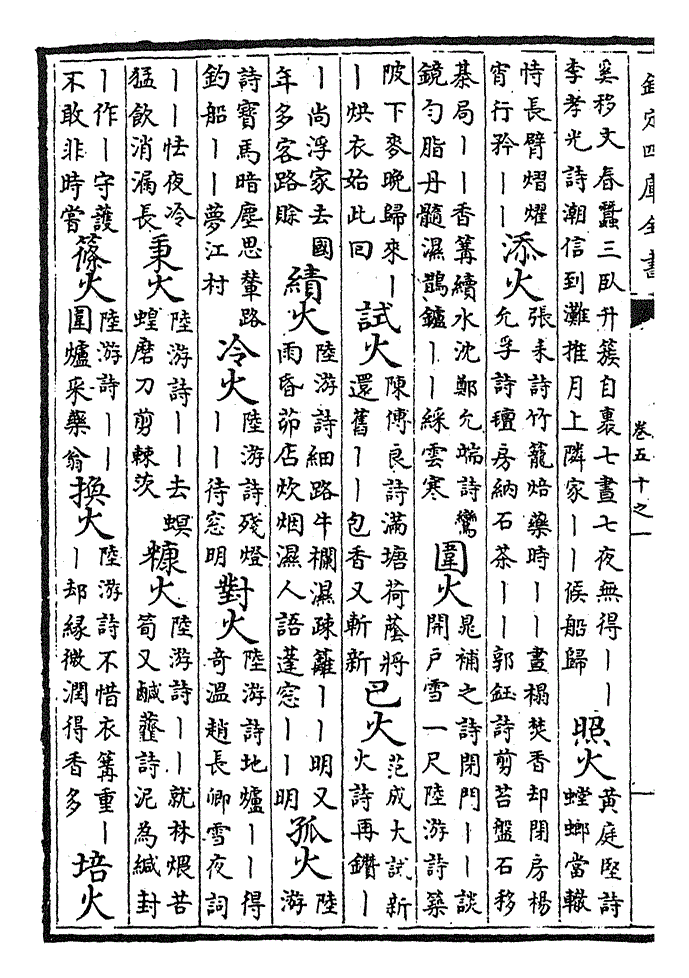 欽定四庫全書
卷五十之一
奚移文春蠶三臥升簇自裹七晝七夜無得丨丨
李孝光詩潮信到灘推月上隣家丨丨候船歸
照火
黃庭堅詩
螳螂當轍
恃長臂熠燿
宵行矜丨丨
添火
張耒詩竹籠焙藥時丨丨晝榻焚香却閉房楊
允孚詩房納石茶丨丨郭鈺詩剪苔盤石移
棊局丨丨香篝續水沈鄭允端詩鸞
鏡勻脂丹髓濕鵲鑪丨丨綵雲寒
圍火
晁補之詩閉門丨丨談
開戶雪一尺陸游詩築
陂下麥晚歸來丨
丨烘衣始此回
試火
陳傅良詩滿塘荷蔭將
還舊丨丨包香又斬新
已火
范成大試新
火詩再鑽丨
丨尚浮家去國
年多客路賒
績火
陸游詩細路牛欄濕疎籬丨丨明又
雨昏茆店炊烟濕人語蓬窓丨丨明
孤火
陸
游
詩寶馬暗塵思輦路
釣船丨丨夢江村
冷火
陸游詩殘燈
丨丨待窓明
對火
陸游詩地爐丨丨得
奇溫趙長卿雪夜詞
丨丨怯夜冷
猛飲消漏長
秉火
陸游詩丨丨去螟
蝗磨刀剪棘茨
糠火
陸游詩丨丨就林煨苦
筍又鹹虀詩泥為緘封
丨作丨守護
不敢非時嘗
篠火
陸游詩丨丨
圍爐采藥翁
換火
陸游詩不惜衣篝重丨
丨却緣微潤得香多
培火